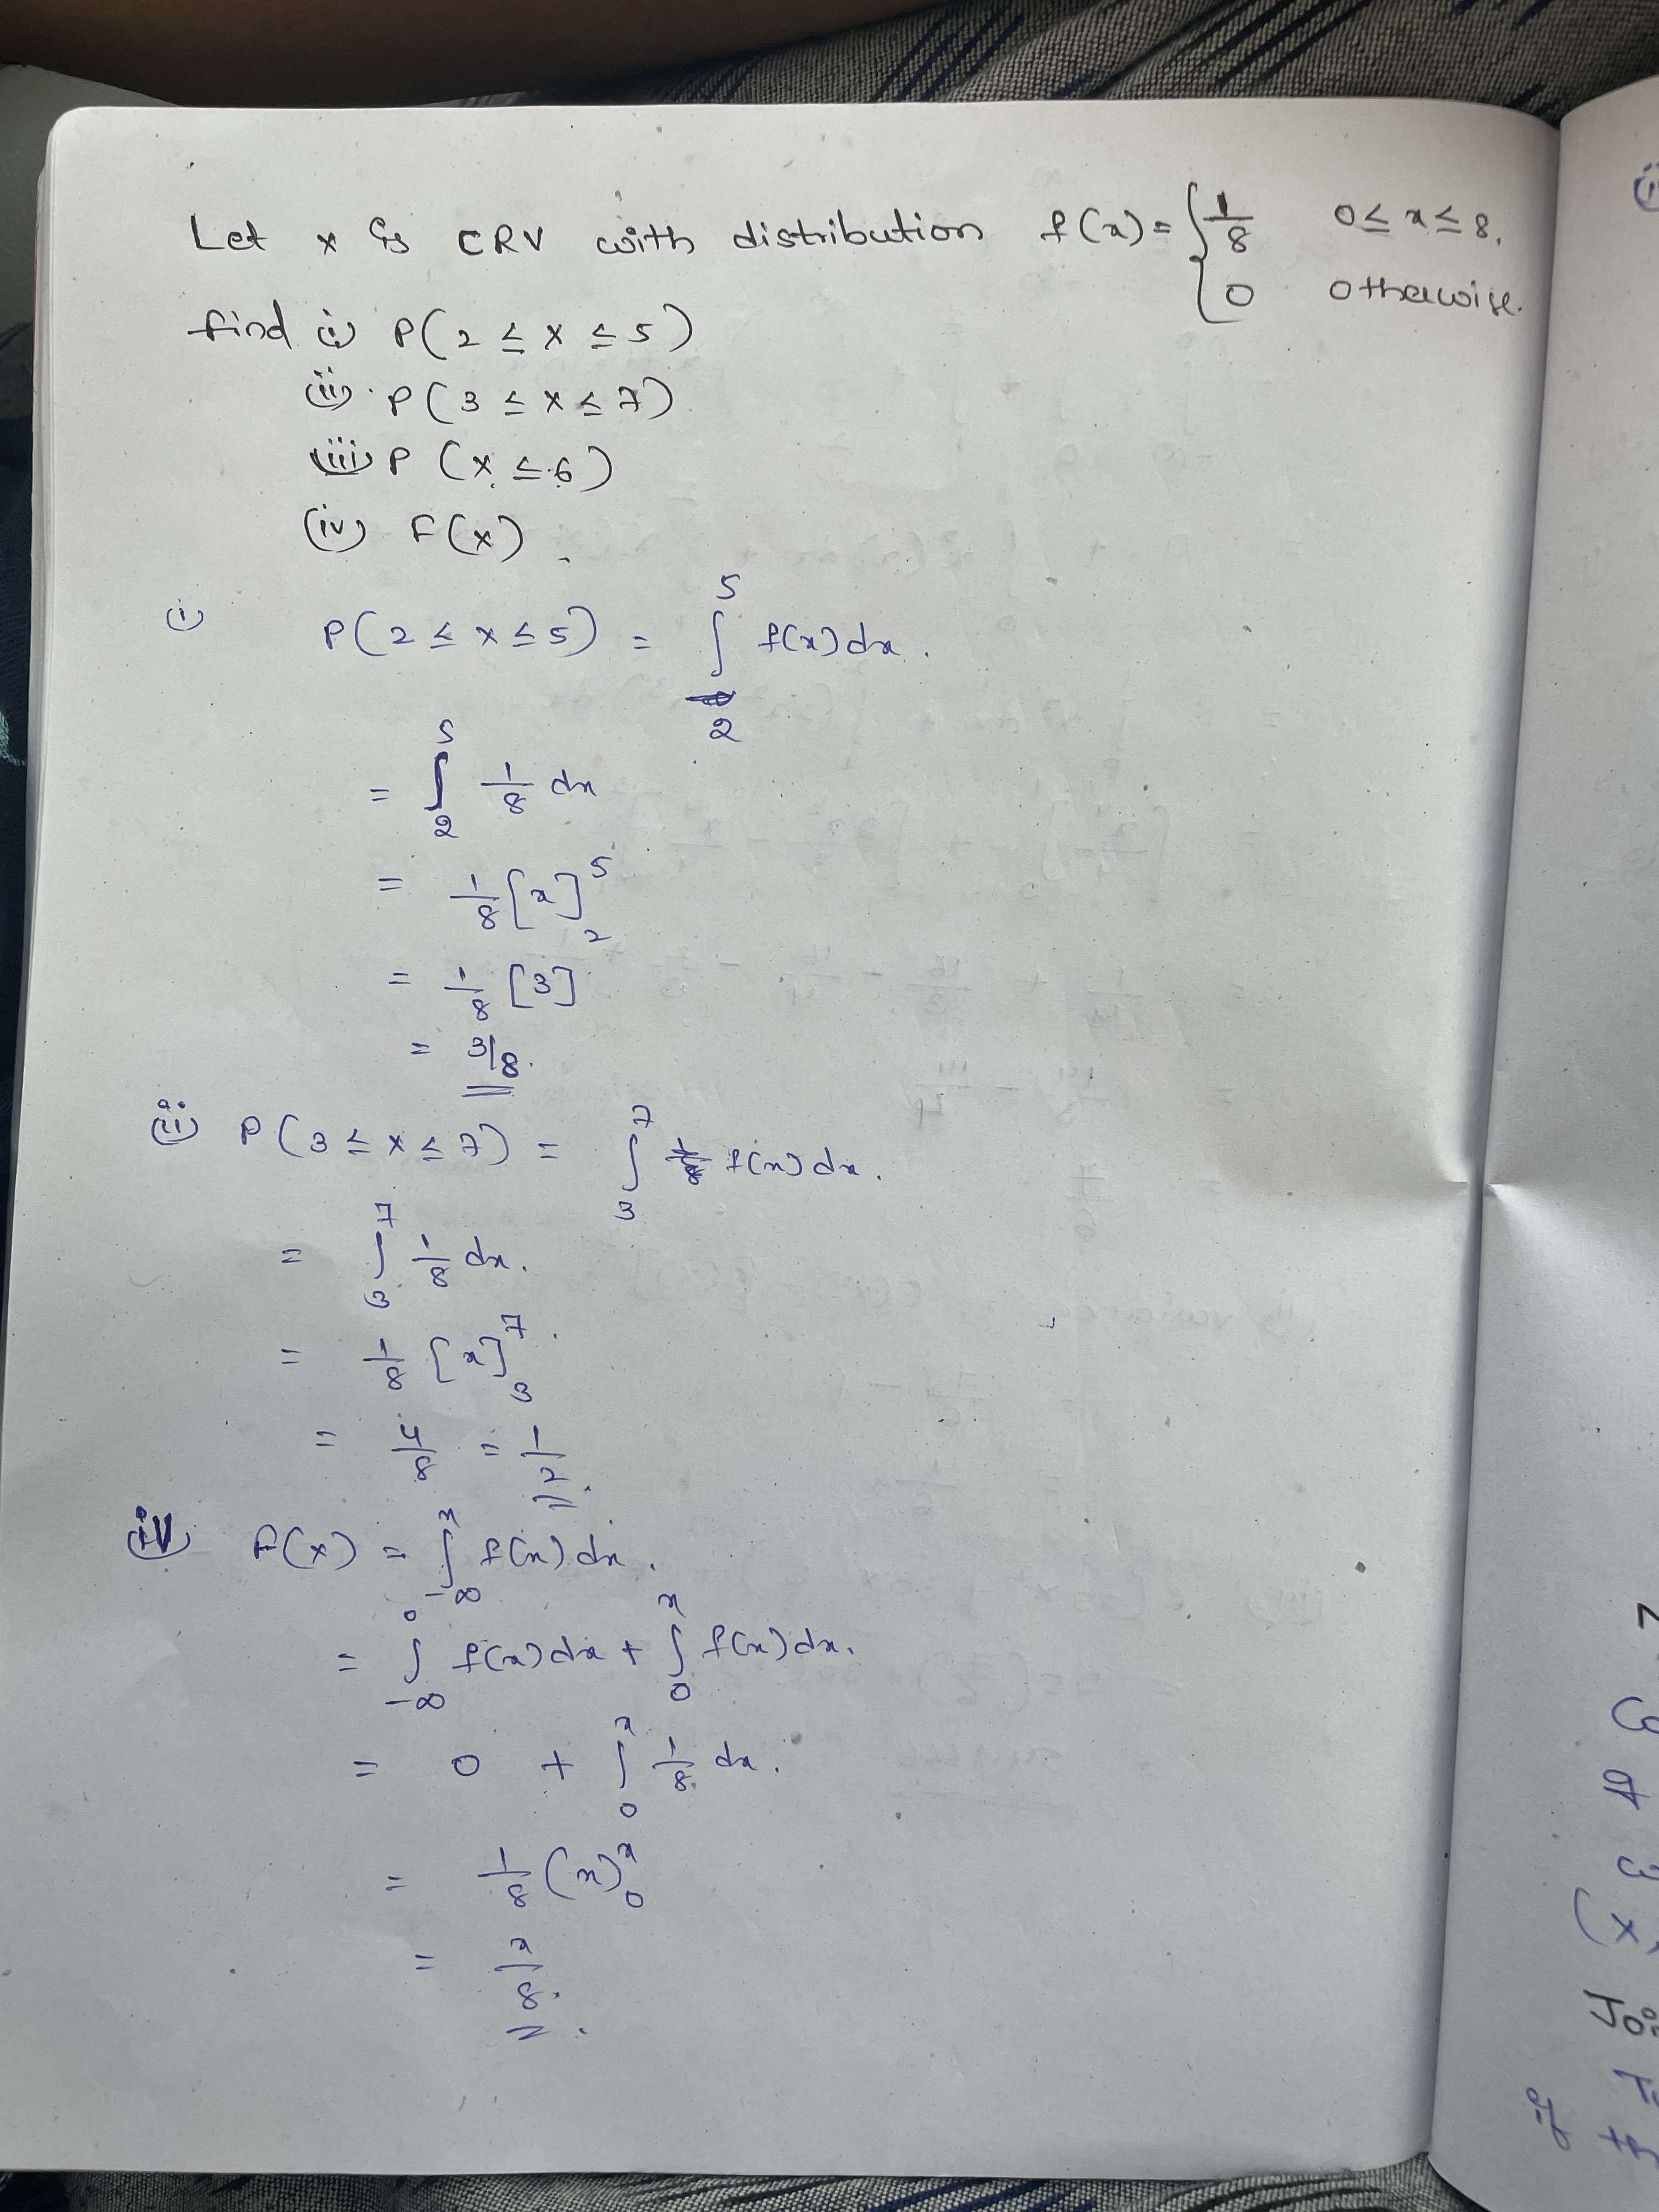 Let x is CRV with distribution f(x) = { 1/8 0 ≤ x ≤ 8,
0 otherwise.
find (i) P(2 ≤ x ≤ 5)
(ii) P(3 ≤ x ≤ 7)
(iii) P(x ≤ 6)
(iv) F(x).
(i) P(2 ≤ x ≤ 5) = ∫₂⁵ f(x) dx.
= ∫₂⁵ 1/8 dx
= 1/8 [x]₂⁵
= 1/8 [3]
= 3/8.
(ii) P(3 ≤ x ≤ 7) = ∫₃⁷ f(x) dx.
= ∫₃⁷ 1/8 dx.
= 1/8 [x]₃⁷.
= 4/8 = 1/2.
(iv) F(x) = ∫_{-∞}^{x} f(x) dx.
= ∫_{-∞}^{0} f(x) dx + ∫_{0}^{x} f(x) dx.
= 0 + ∫_{0}^{x} 1/8 dx.
= 1/8 (x)_{0}^{x}
= x/8.
(x
if